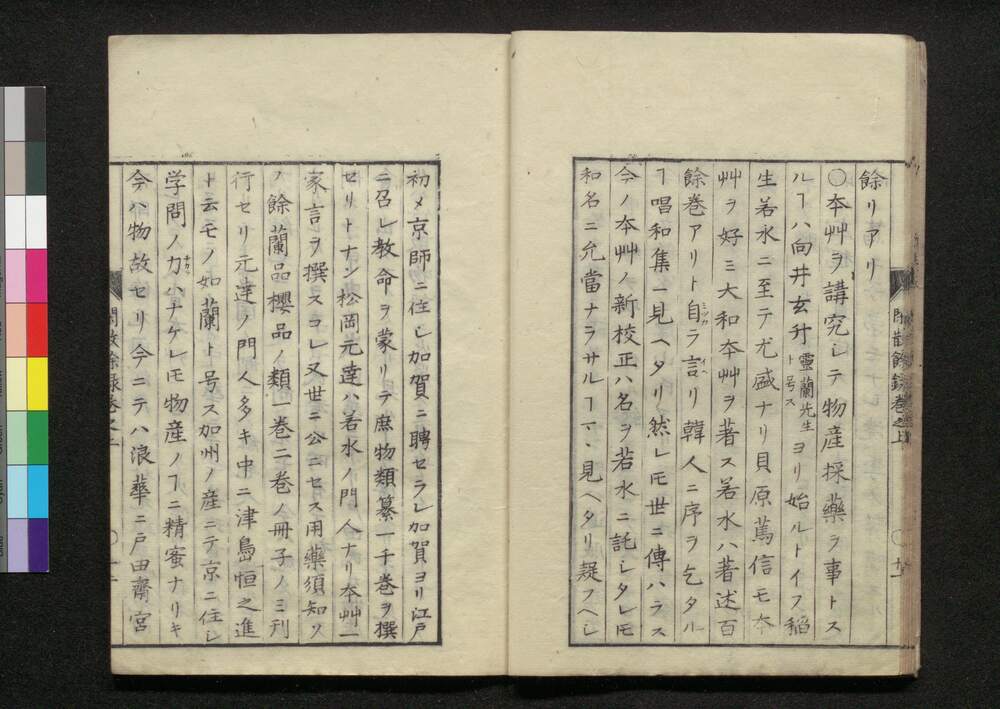 餘リアリ
〇本艸ヲ講究シテ物産採藥ヲ事トス
ルヿハ向井玄升靈蘭先生ト号スヨリ始ルトイフ稲
生若水ニ至テ尤盛ナリ貝原篤信モ本
艸ヲ好ミ大和本艸ヲ著ス若水ハ著述百
餘巻アリト自ミツカラ言イヘリ韓人ニ序ヲ乞タル
ヿ唱和集ニ見ヘタリ然レ𪜈世ニ傳ハラス
今ノ本艸ノ新校正ハ名ヲ若水ニ託シタレ𪜈
和名ニ允當ナラサルヿマヽ見ヘタリ疑フヘシ
閒散餘録巻之上
十一
初メ京師ニ住シ加賀ニ聘セラレ加賀ヨリ江戸
ニ召レ教命ヲ蒙リテ庶物類纂一千巻ヲ撰
セリトナン松岡元達ハ若水ノ門人ナリ本艸一
家言ヲ撰スコレ又世ニ公ニセス用藥須知ソ
ノ餘蘭品櫻品ノ類一巻二巻ノ冊子ノミ刊
行セリ元達ノ門人多キ中ニ津島恒之進
ト云モノ如蘭ト号ス加州ノ産ニテ京ニ住シ
学問ノ力ハナケレ𪜈物産ノヿニ精蜜ナリキ
今ハ物故セリ今ニテハ浪華ニ戸田齋宮